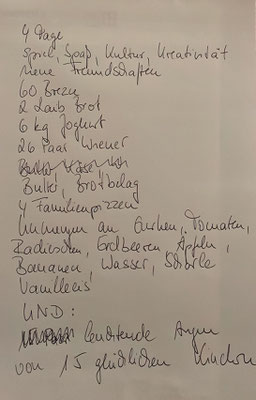 4 Tage
Spiel, Spaß, Kultur, Kreativität
neue Freundschaften
60 Brezn
2 Laib Brot
6 kg Joghurt
26 Paar Wiener
Butter, Brotbelag
4 Familienpizzen
Unmengen an Gurken, Tomaten,
Radieschen, Erdbeeren, Äpfeln,
Bananen, Wasser, Schorle
Vanilleeis
UND:
leuchtende Augen
von 15 glücklichen Kindern